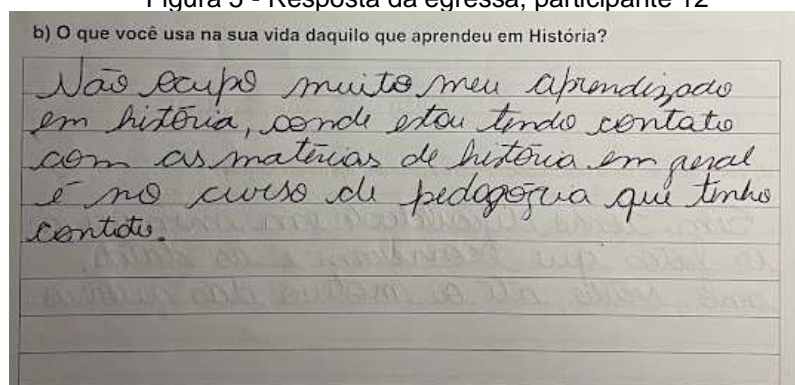 Figura 5 - Resposta da egressa, participante 12
b) O que você usa na sua vida daquilo que aprendeu em História?
Não ocupo muito meu aprendizado
em história, aonde estou tendo contato
com as matérias de história em geral
é no curso de pedagogia que tenho
contato.